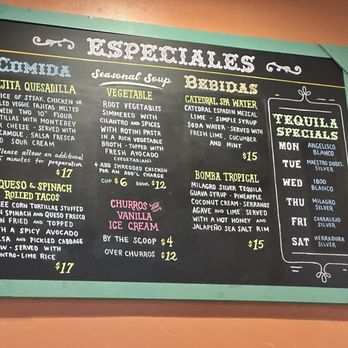 ESPECIALES
COMIDA
FAJITA QUESADILLA
OF STEAK, CHICKEN OR
VEGGIE FAJITAS MELTED
TWO 10" FLOUR
TORTILLAS WITH MONTEREY
CHEESE - SERVED WITH
SALSA FRESCA
SOUR CREAM
Please allow an additional
minutes for preparation
$17
QUESO & SPINACH
ROLLED TACOS
CORN TORTILLAS STUFFED
SPINACH AND QUESO FRESCO
FRIED AND TOPPED
WITH A SPICY AVOCADO
SALSA AND PICKLED CABBAGE
- SERVED WITH
CILANTRO-LIME RICE
$17
Seasonal Soup
VEGETABLE
ROOT VEGETABLES
SIMMERED WITH
CILANTRO AND SPICES
WITH ROTINI PASTA
IN A RICH VEGETABLE
BROTH - TOPPED WITH
FRESH AVOCADO
(VEGETARIAN)
+ ADD SHREDDED CHICKEN
FOR AN ADD'L CHARGE
CUP $6 BOWL $12
CHURROS
VANILLA
ICE CREAM
BY THE SCOOP $4
OVER CHURROS $12
BEBIDAS
CATEDRAL SPA WATER
CATEDRAL ESPADIN MEZCAL
LIME - SIMPLE SYRUP
SODA WATER - SERVED WITH
FRESH LIME, CUCUMBER
AND MINT
$15
BOMBA TROPICAL
MILAGRO SILVER TEQUILA
GUAVA SYRUP - PINEAPPLE
COCONUT CREAM - SERRANOS
AGAVE AND LIME. SERVED
WITH A HOT HONEY AND
JALAPEÑO SEA SALT RIM
$15
TEQUILA
SPECIALS
MON ANGELISCO
BLANCO
TUE MAESTRO DOBEL
SILVER
WED 1800
BLANCO
THU MILAGRO
SILVER
FRI CORRALEJO
SILVER
SAT HERRADURA
SILVER